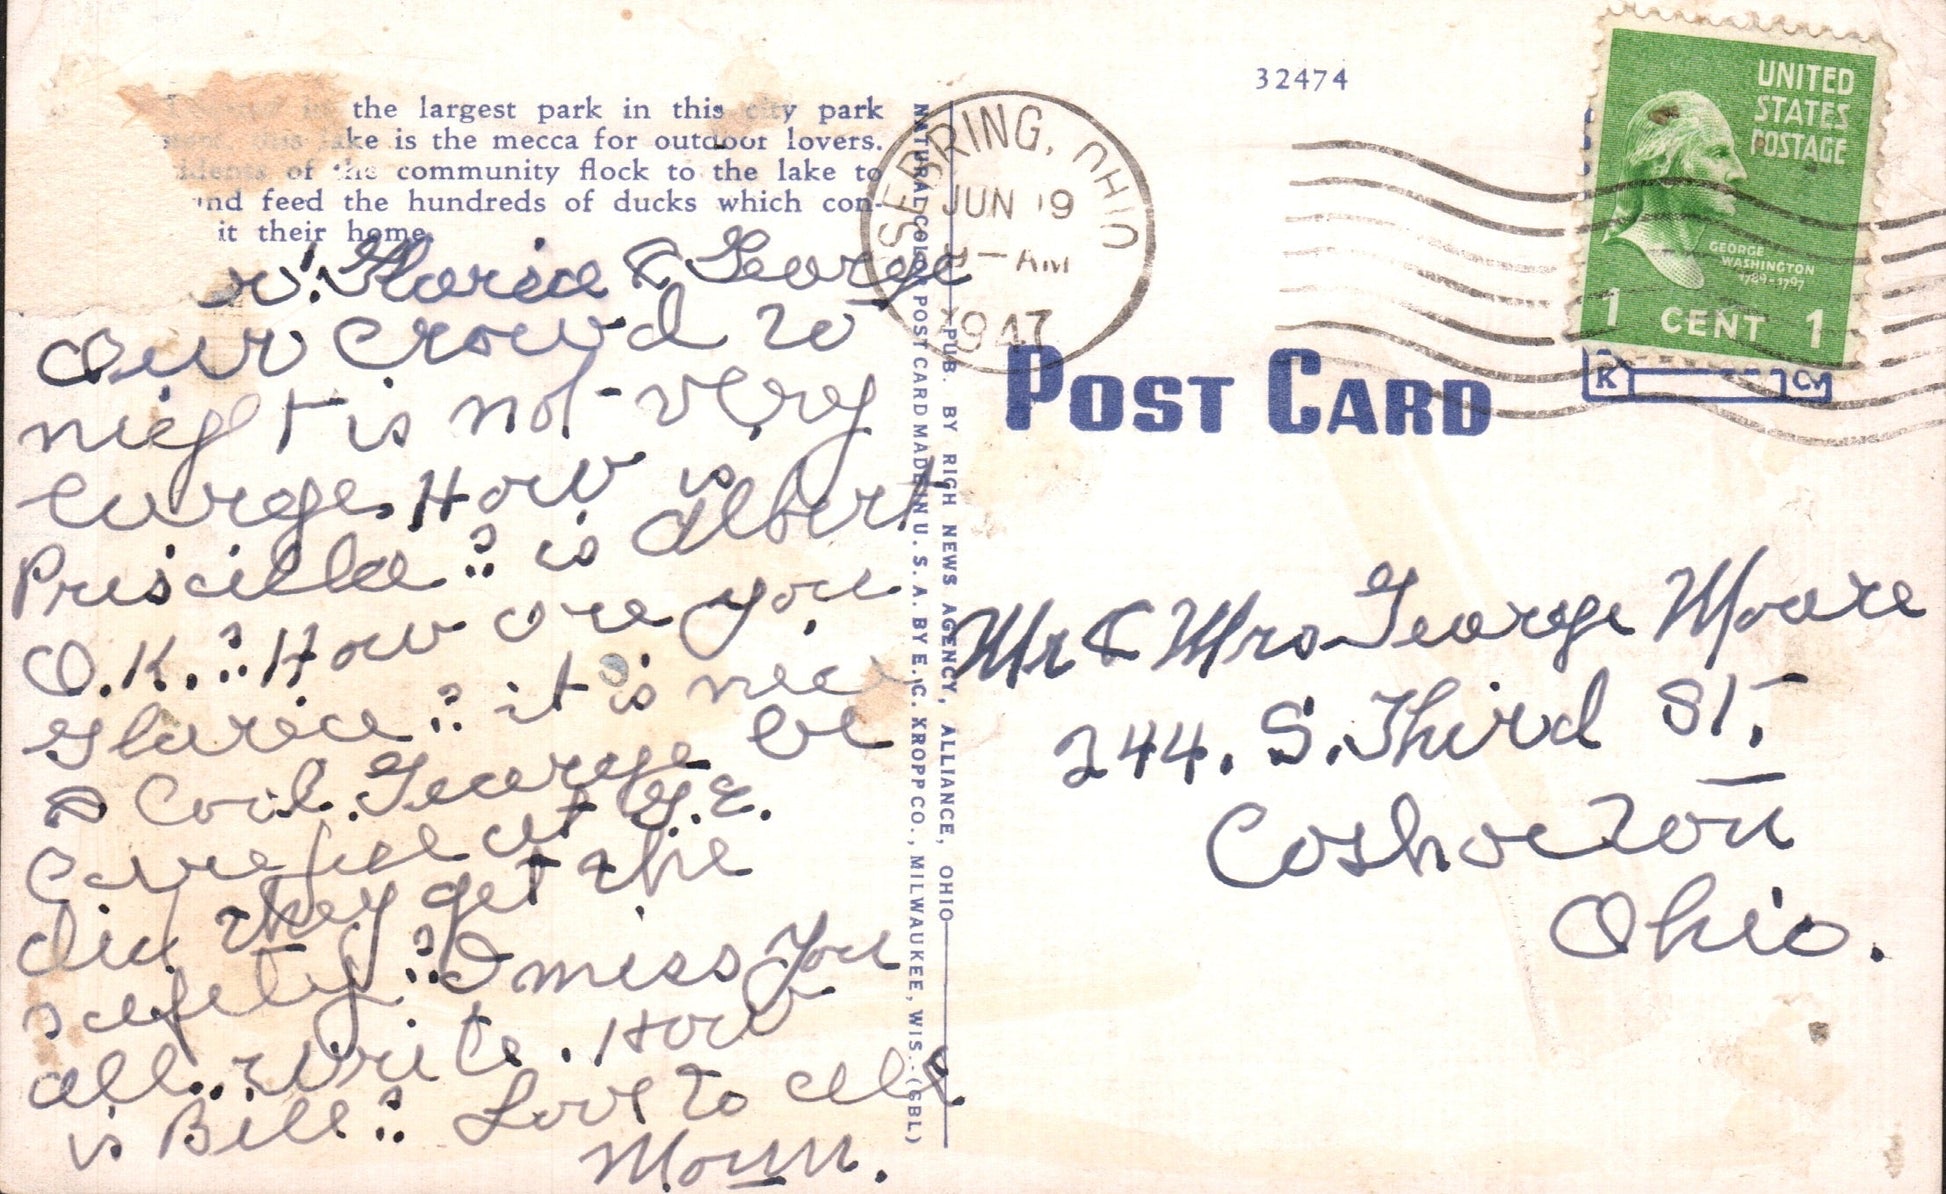 the largest park in this city park
this lake is the mecca for outdoor lovers.
idents of the community flock to the lake to
and feed the hundreds of ducks which con-
it their home.
r. Glarice & George
Our crowd to
night is not very
large. How is
Priscilla? is Albert
O.K.? How are you
Glarice? it is nice
& Cool. George be
Careful at G.E.
did they get the
safety? I miss you
all.. write. How
is Bill? Love to all
Mom.
NATURAL COLOR POST CARD MADE IN U. S. A. BY E. C. KROPP CO., MILWAUKEE, WIS. (GBL)
PUB. BY RICH NEWS AGENCY, ALLIANCE, OHIO
32474
SEBRING, OHIO
JUN 19
-AM
1947
UNITED
STATES
POSTAGE
GEORGE
WASHINGTON
1789-1797
1 CENT 1
K Co
POST CARD
Mr & Mrs George Moore
244. S. Third St.
Coshocton
Ohio.